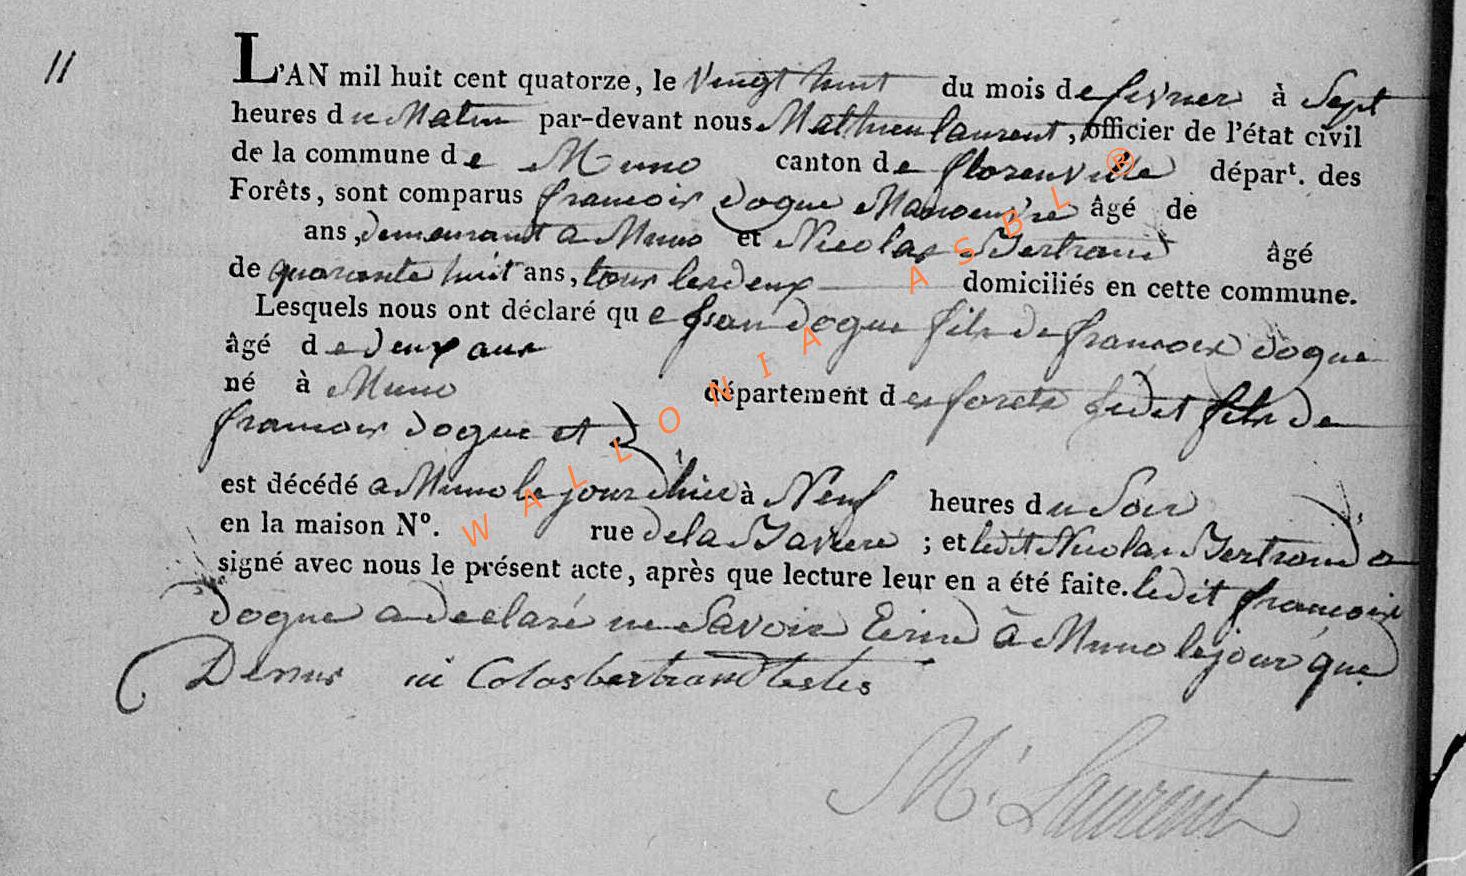 11
L'AN mil huit cent quatorze, le Vingt huit du mois de fevrier à Sept
heures du Matin par-devant nous Mathieu laurent, officier de l'état civil
de la commune de Muno canton de florenville départ. des
Forêts, sont comparus francois dogue Manoeuvre âgé de
ans, demeurant a Muno et Nicolas Bertrand âgé
de quarante huit ans, tous les deux domiciliés en cette commune.
Lesquels nous ont déclaré que jean dogue fils de francois dogue
âgé de deux ans
né à Muno département des forets ledit fils de
francois dogue et d
est décédé a Muno le jour dhier à Neuf heures du Soir
en la maison Nº. rue de la ; et ledit Nicolas Bertrand a
signé avec nous le présent acte, après que lecture leur en a été faite. ledit francois
dogue a declaré ne Savoir Ecrire à Muno le jour que
Desus ni Colas bertrand testes
M. Laurent
WALLONIA ASBL ®